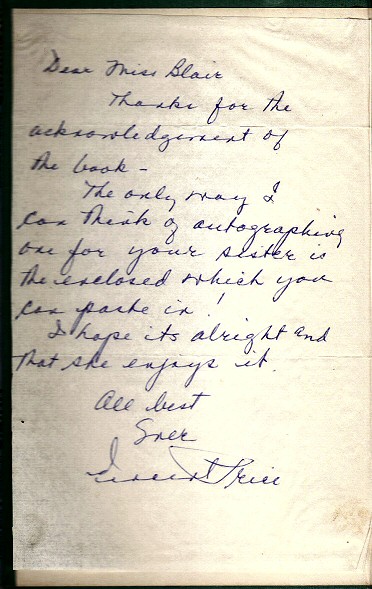 Dear Miss Blair
Thanks for the
acknowledgement of
the book -
The only way I
can think of autographing
one for your sister is
the enclosed which you
can paste in!
I hope its alright and
that she enjoys it.
All best
Ever
Vincent Price